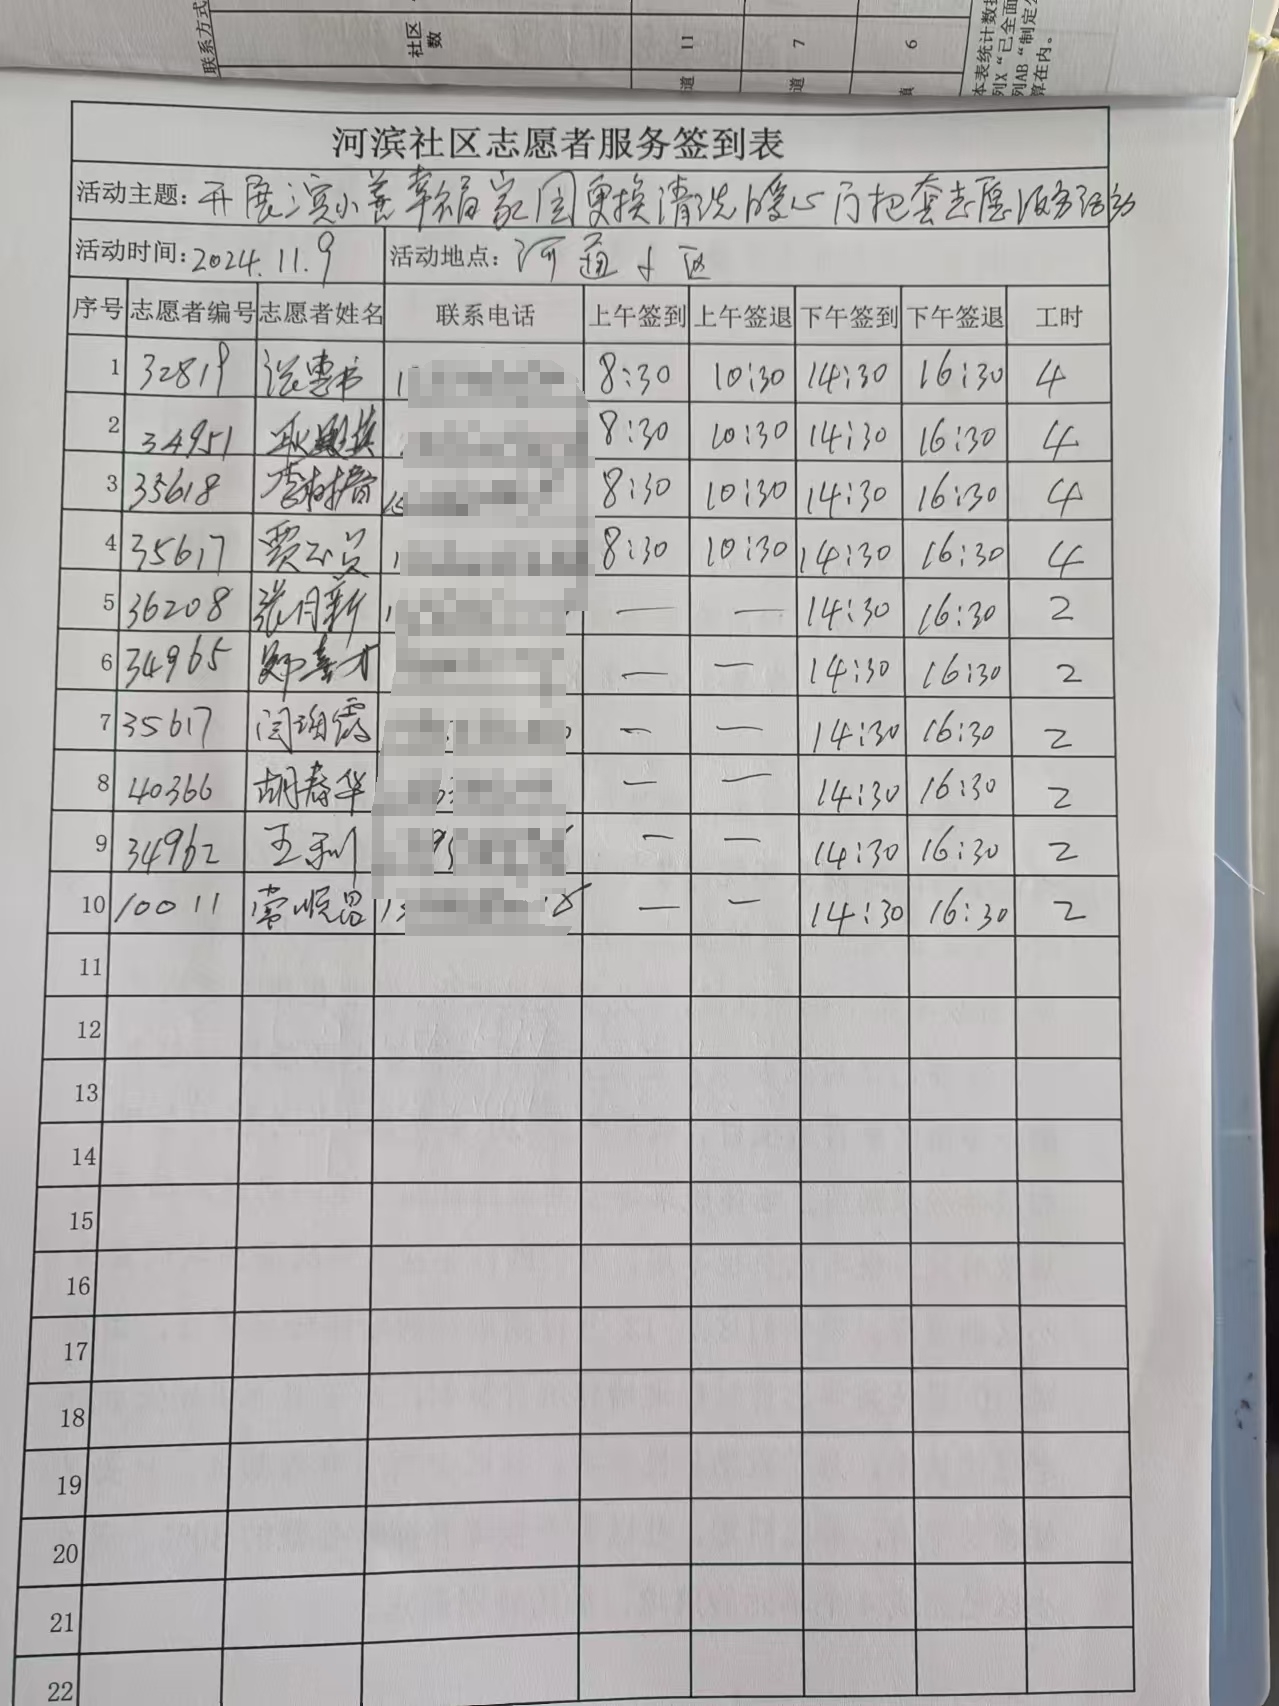 联系方式
社区数
11
7
6
道
道
镇
本表统计数据
列X“已全面
列AB“制定公
算在内。
河滨社区志愿者服务签到表
活动主题: 开展滨小善幸福家园更换清洗暖心门把套志愿服务活动
活动时间: 2024.11.9 活动地点: 河道小区
序号 志愿者编号 志愿者姓名 联系电话 上午签到 上午签退 下午签到 下午签退 工时
1 32819 8:30 10:30 14:30 16:30 4
2 34951 8:30 10:30 14:30 16:30 4
3 35618 8:30 10:30 14:30 16:30 4
4 35617 8:30 10:30 14:30 16:30 4
5 36208 张月新 — — 14:30 16:30 2
6 34965 郑喜才 — — 14:30 16:30 2
7 35617 闫海霞 — — 14:30 16:30 2
8 40366 胡春华 — — 14:30 16:30 2
9 34962 王利 — — 14:30 16:30 2
10 10011 常顺昌 — — 14:30 16:30 2
11
12
13
14
15
16
17
18
19
20
21
22